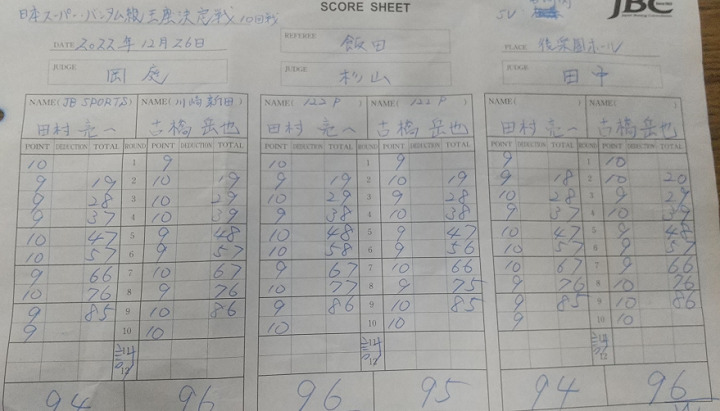 SCORE SHEET
JBC
日本スーパー・バンタム級王座決定戦 10回戦
SV
DATE 2022年12月26日
REFEREE 飯田
PLACE 後楽園ホール
JUDGE 岡庭
JUDGE 杉山
JUDGE 田中
NAME( JB SPORTS ) NAME( 川崎新田 ) NAME( 122 P ) NAME( 122 P ) NAME( ) NAME( )
田村亮一 古橋岳也 田村亮一 古橋岳也 田村亮一 古橋岳也
POINT DEDUCTION TOTAL ROUND POINT DEDUCTION TOTAL POINT DEDUCTION TOTAL ROUND POINT DEDUCTION TOTAL POINT DEDUCTION TOTAL ROUND POINT DEDUCTION TOTAL
10 1 9 10 1 9 9 1 10
9 19 2 10 19 9 19 2 10 19 9 18 2 10 20
9 28 3 10 29 10 29 3 9 28 10 28 3 9 29
9 37 4 10 39 9 38 4 10 38 9 37 4 10 39
10 47 5 9 48 10 48 5 9 47 10 47 5 9 48
10 57 6 9 57 10 58 6 9 56 10 57 6 9 57
9 66 7 10 67 9 67 7 10 66 10 67 7 9 66
10 76 8 9 76 10 77 8 9 75 9 76 8 10 76
9 85 9 10 86 9 86 9 10 85 9 85 9 10 86
9 10 10 10 10 10 9 10 10
94 96 96 95 94 96